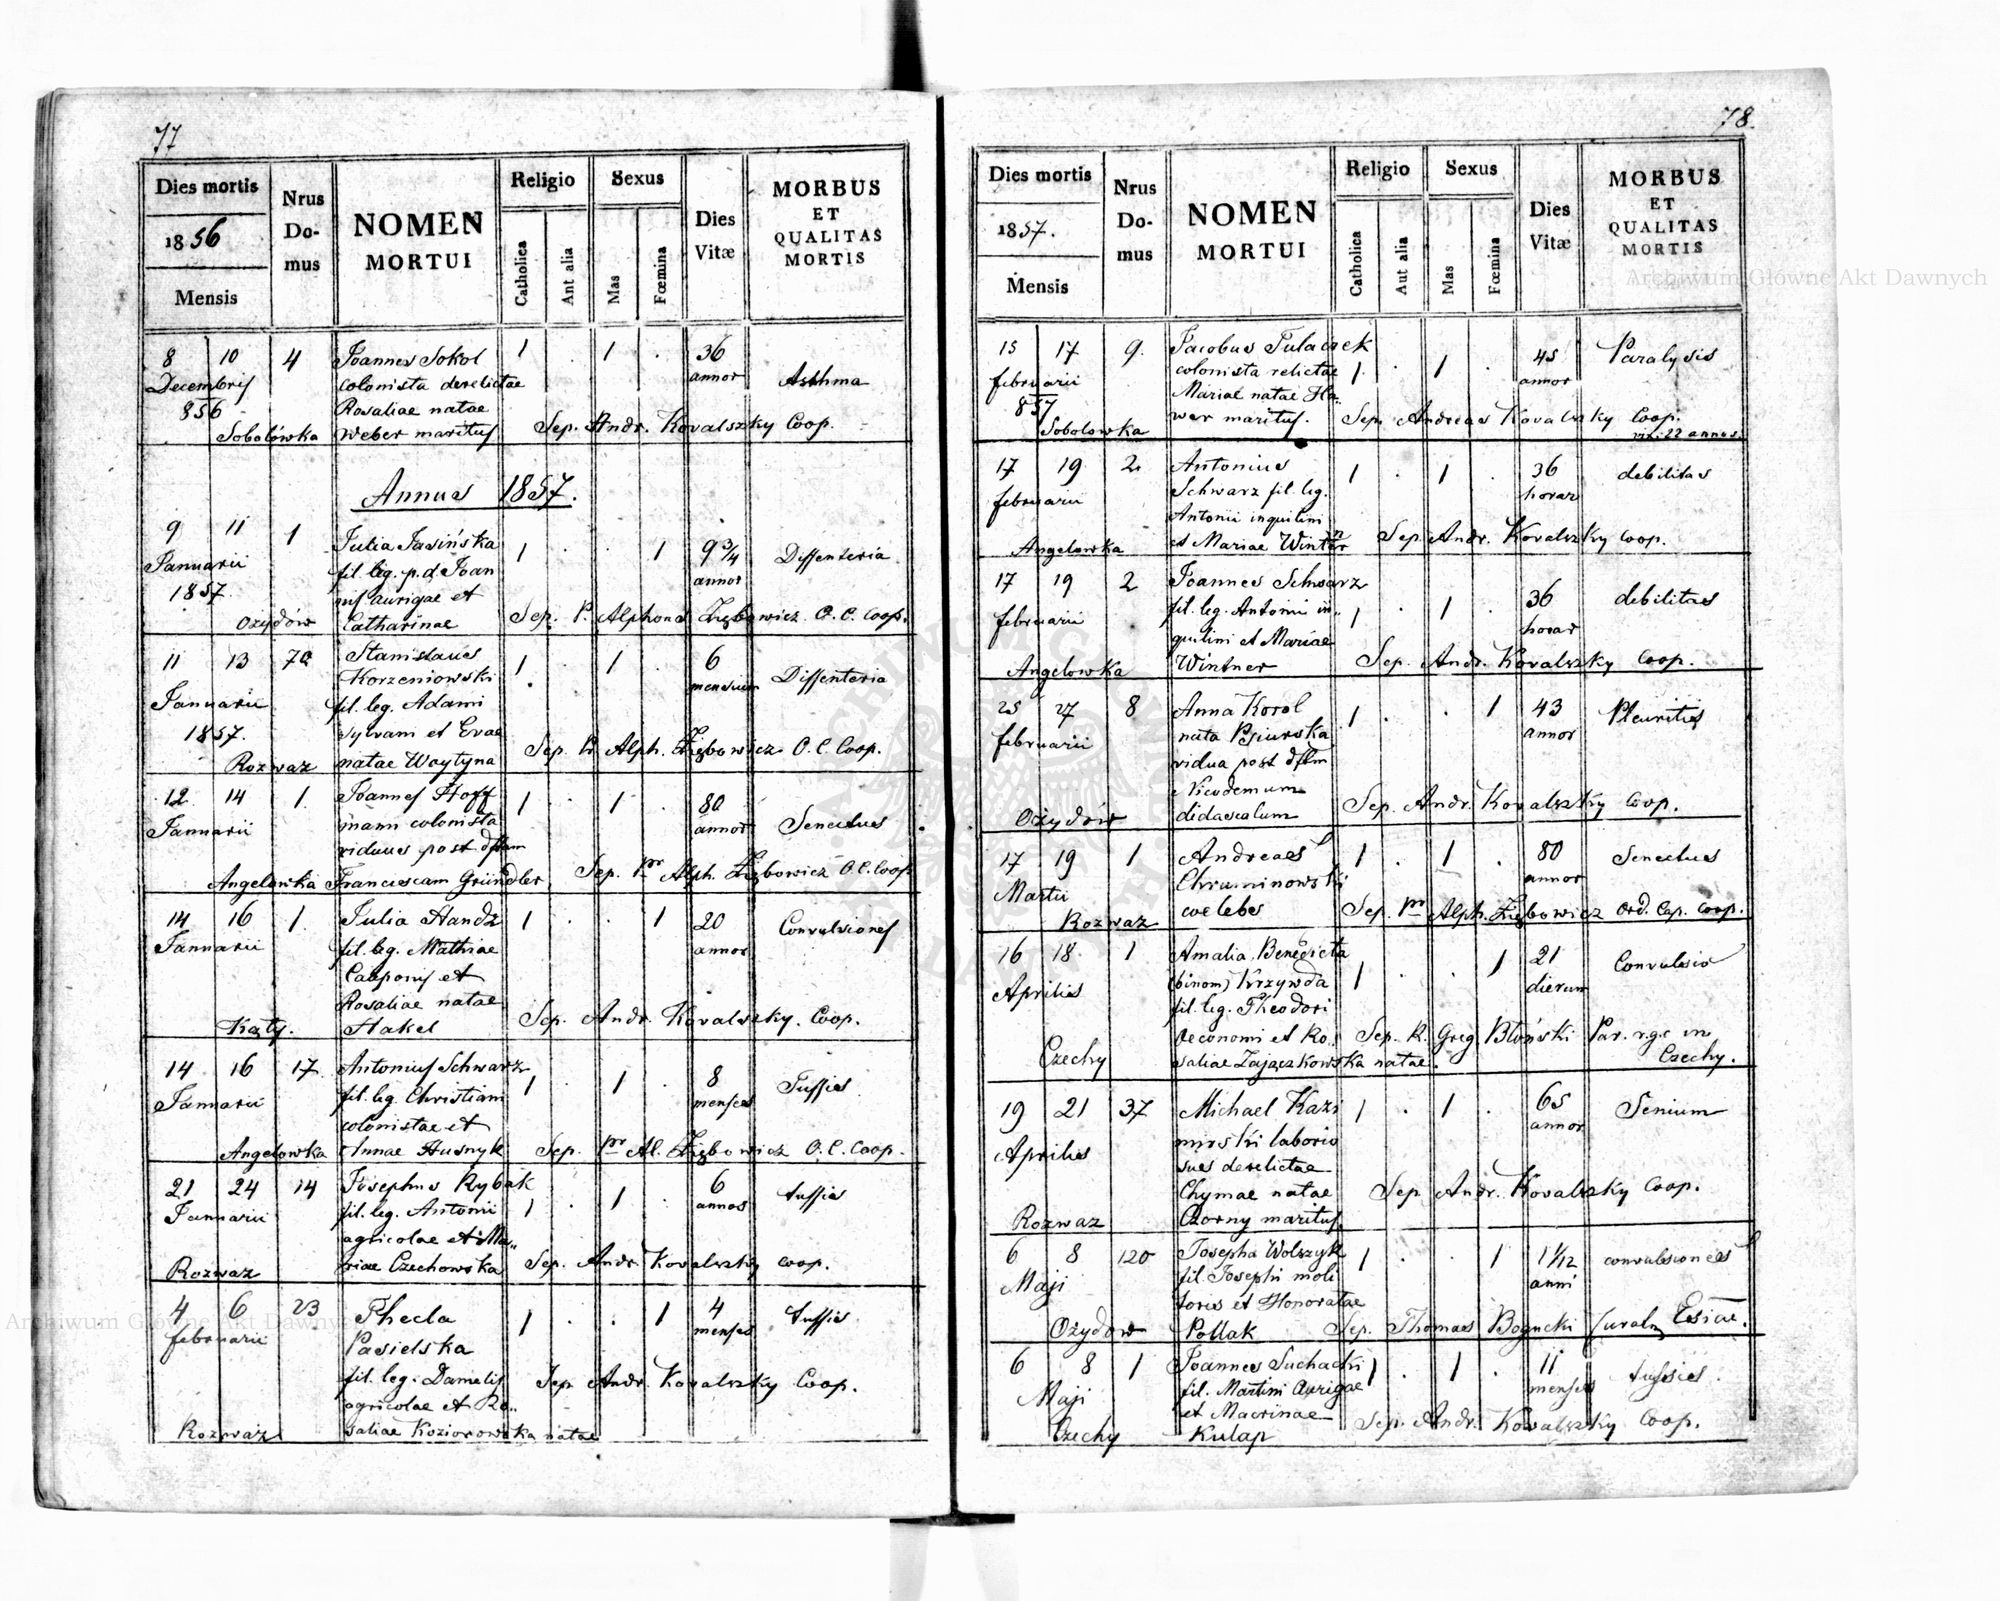 77
Dies mortis
1856
Mensis
Nrus Do-mus
NOMEN MORTUI
Religio
Catholica
Aut alia
Sexus
Mas
Fœmina
Dies Vitæ
MORBUS ET QUALITAS MORTIS
8 10 4 Joannes Sokol 1 . 1 . 36
Decembris colonista derelictae annor Asthma
856 Rosaliae natae
Sobolówka Weber maritus Sep. Andr. Kovalszky Coop.
Annus 1857.
9 11 1 Julia Jasińska 1 . . 1 9 3/4 Dissenteria
Januarii fil. leg. p. d. Joan annor
1857 nis aurigae et
Ożydów Catharinae Sep. P. Alphons Ziębowicz O. C. Coop.
11 13 70 Stanislaus 1 . 1 . 6
Korzeniowski mensium Dissenteria
Januarii fil. leg. Adami
1857. sylvani et Evae Sep. P. Alph. Ziębowicz O. C. Coop.
Rozwaz natae Woytyna
12 14 1. Joannes Hoff 1 . 1 . 80
Januarii mann colonista annor Senectus
viduus post dftam
Angelowka Franciscam Gründler Sep. Pr Alph. Ziębowicz O.C. Coop
14 16 1. Julia Handz 1 . . 1 20 Convulsiones
Januarii fil. leg. Mathiae annor
Rosaliae natae
Kąty. Hakel Sep. Andr. Kovalszky. Coop.
14 16 17 Antonius Schwarz 1 . 1 . 8 Tussis
Januarii fil. leg. Christiani menses
colonistae et
Angelowka Annae Husnyk Sep. Pr Al. Ziębowicz O. C. Coop.
21 24 14 Josephus Rybak 1 . 1 . 6 tussis
Januarii fil. leg. Antoni annos
agricolae et Ma„
Rozwaz riae Czechowska Sep. Andr. Kovalszky coop.
4 6 23 Thecla 1 . . 1 4 tussis
februarii Pasielska menses
fil. leg. Danielis Sep. Andr. Kovalszky Coop.
agricolae et Ro„
Rozwaz saliae Koziorowska natae
78.
Dies mortis
1857.
Mensis
Nrus Do-mus
NOMEN MORTUI
Religio
Catholica
Aut alia
Sexus
Mas
Fœmina
Dies Vitæ
MORBUS ET QUALITAS MORTIS
15 17 9. Jacobus Tulaczek 1. . 1 . 45 Paralysis
februarii colonista relictae annor
857 Mariae natae Ha„
Sobolowka wer maritus. Sep. Andreas Kovalszky Coop.
22 annos.
17 19 2 Antonius 1 . 1 . 36 debilitas
februarii Schwarz fil. leg. horar
Antonii inquilini
Angelowka et Mariae Wintner Sep. Andr. Kovalszky Coop.
17 19 2 Joannes Schwarz 1 . 1 . 36 debilitas
februarii fil. leg. Antonii in„ horar
quilini et Mariae
Angelowka Wintner Sep. Andr. Kovalszky Coop.
25 27 8 Anna Korol 1 . . 1 43 Pleuritis
februarii nata annor
vidua post dftm
Nicodemum
Ożydów didascalum Sep. Andr. Kovalszky Coop.
17 19 1 Andreas 1 . 1 . 80 Senectus
Martii Chruminowski annor
Rozwaz coelebs Sep. Pr Alph. Ziębowicz Ord. Cap. Coop.
16 18 1 Amalia Benedicta 1 . . 1 21 Convulsio
Aprilis (binom) Krzywda dierum
fil. leg. Theodori
oeconomi et Ro„ Sep. R. Greg. Błoński Par. r.g.c in
Czechy saliae Zajączkowska natae. Czechy.
19 21 37 Michael Kazi 1 . 1 . 65 Senium
Aprilis mirski laborio annor
sus derelictae
Chymae natae Sep. Andr. Kovalszky Coop.
Rozwaz Czorny maritus
6 8 120 Josepha Wolszyk 1 . . 1 1 1/12 convulsiones
Maji fil. Josephi moli anni
toris et Honoratae
Ożydow Pollak Sep. Thomas Bogucki Curatus
6 8 1 Joannes Suchacki 1 . 1 . 11 tussis.
Maji fil. Martini aurigae menses
et Macrinae
Czechy Kulap Sep. Andr. Kovalszky Coop.
Archiwum Główne Akt Dawnych
Archiwum Główne Akt Dawnych